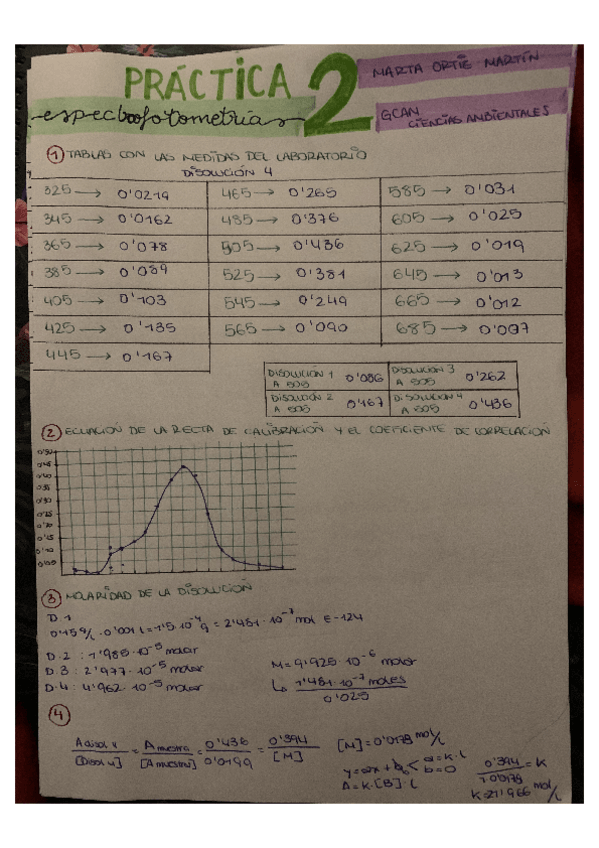 PRÁCTICA 2
MARTA ORTIE MARTÍN
espectrofotometrias
GCAN
CIENCIAS AMBIENTALES
1 TABLAS CON LAS MEDIDAS DEL LABORATORIO
DISOLUCIÓN 4
325 → 0'0219 465 → 0'265 585 → 0'031
345 → 0'0162 485 → 0'376 605 → 0'025
365 → 0'078 505 → 0'436 625 → 0'019
385 → 0'089 525 → 0'381 645 → 0'013
405 → 0'103 545 → 0'249 665 → 0'012
425 → 0'135 565 → 0'090 685 → 0'007
445 → 0'167
DISOLUCIÓN 1 A 505 0'086 DISOLUCIÓN 3 A 505 0'262
DISOLUCIÓN 2 A 505 0'167 DISOLUCIÓN 4 A 505 0'436
2 ECUACIÓN DE LA RECTA DE CALIBRACIÓN Y EL COEFICIENTE DE CORRELACIÓN
0'50
0'45
0'40
0'35
0'30
0'25
0'20
0'15
0'10
0'05
3 MOLARIDAD DE LA DISOLUCIÓN
D.1
0'15 g/l · 0'001 l = 1'5·10⁻⁴ g = 2'481·10⁻⁷ mol E-124
D.2 : 1'985·10⁻⁵ molar
D.3 : 2'977·10⁻⁵ molar M = 9'925·10⁻⁶ molar
D.4 : 4'962·10⁻⁵ molar ↳ 2'481·10⁻⁷ moles / 0'025
4
A disol 4 / [Disol 4] = A muestra / [A muestra] = 0'436 / 0'0199 = 0'394 / [M] [M] = 0'0178 mol/l
y = ax + b a = k·l b = 0
A = K·[B]·l
0'394 / 1·0'0178 = K
K = 21'966 mol/l